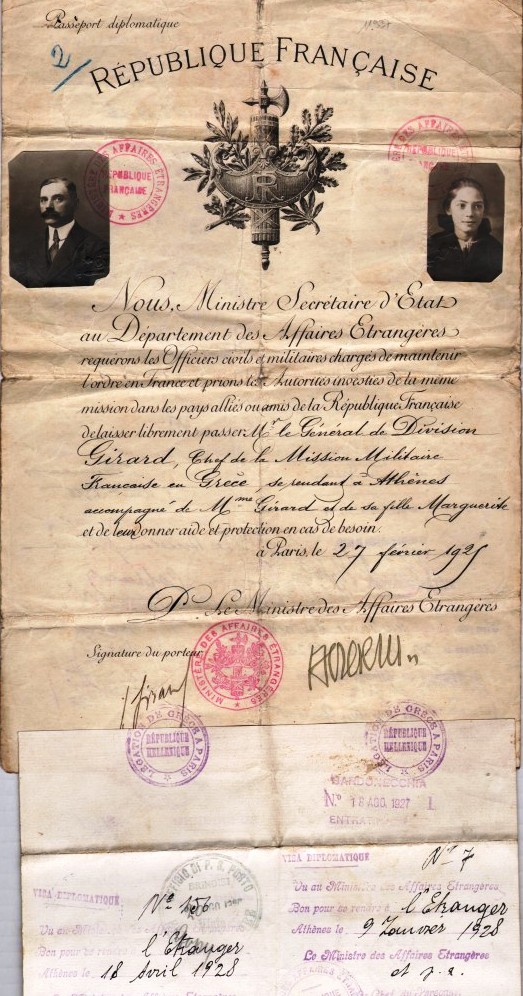 Passeport diplomatique
2
RÉPUBLIQUE FRANÇAISE
MINISTÈRE DES AFFAIRES ÉTRANGÈRES
RÉPUBLIQUE
FRANÇAISE
DES AFFAIRES
RÉPUBLIQUE
R
Nous, Ministre Secrétaire d'Etat
au Département des Affaires Etrangères
requérons les Officiers civils et militaires chargés de maintenir
l'ordre en France et prions les Autorités investies de la même
mission dans les pays alliés ou amis de la République Française
de laisser librement passer Mr le Général de Division
Girard, Chef de la Mission Militaire
Française en Grèce se rendant à Athènes
accompagné de Mme Girard et de sa fille Marguerite
et de leur donner aide et protection en cas de besoin.
à Paris, le 27 février 1925
P. Le Ministre des Affaires Etrangères
Signature du porteur
MINISTÈRE DES AFFAIRES ÉTRANGÈRES
Girard
LÉGATION DE GRÈCE A PARIS
RÉPUBLIQUE
HELLÉNIQUE
LÉGATION DE GRÈCE A PARIS
RÉPUBLIQUE
HELLÉNIQUE
BARDONECCHIA
N.º 18 AGO. 1927 1
ENTRATA
VISA DIPLOMATIQUE
Nº 7
Vu au Ministère des Affaires Etrangères
Bon pour se rendre à l'Etranger
Athènes le 9 Janvier 1928
Le Ministre des Affaires Etrangères
et p.a.
VISA DIPLOMATIQUE
UFFICIO DI P. S. PORTO
BRINDISI
Nº 156
Vu au Ministère des Affaires Etrangères
Bon pour se rendre à l'Etranger
Athènes le 18 Avril 1928
Le Ministre des Affaires Etrangères